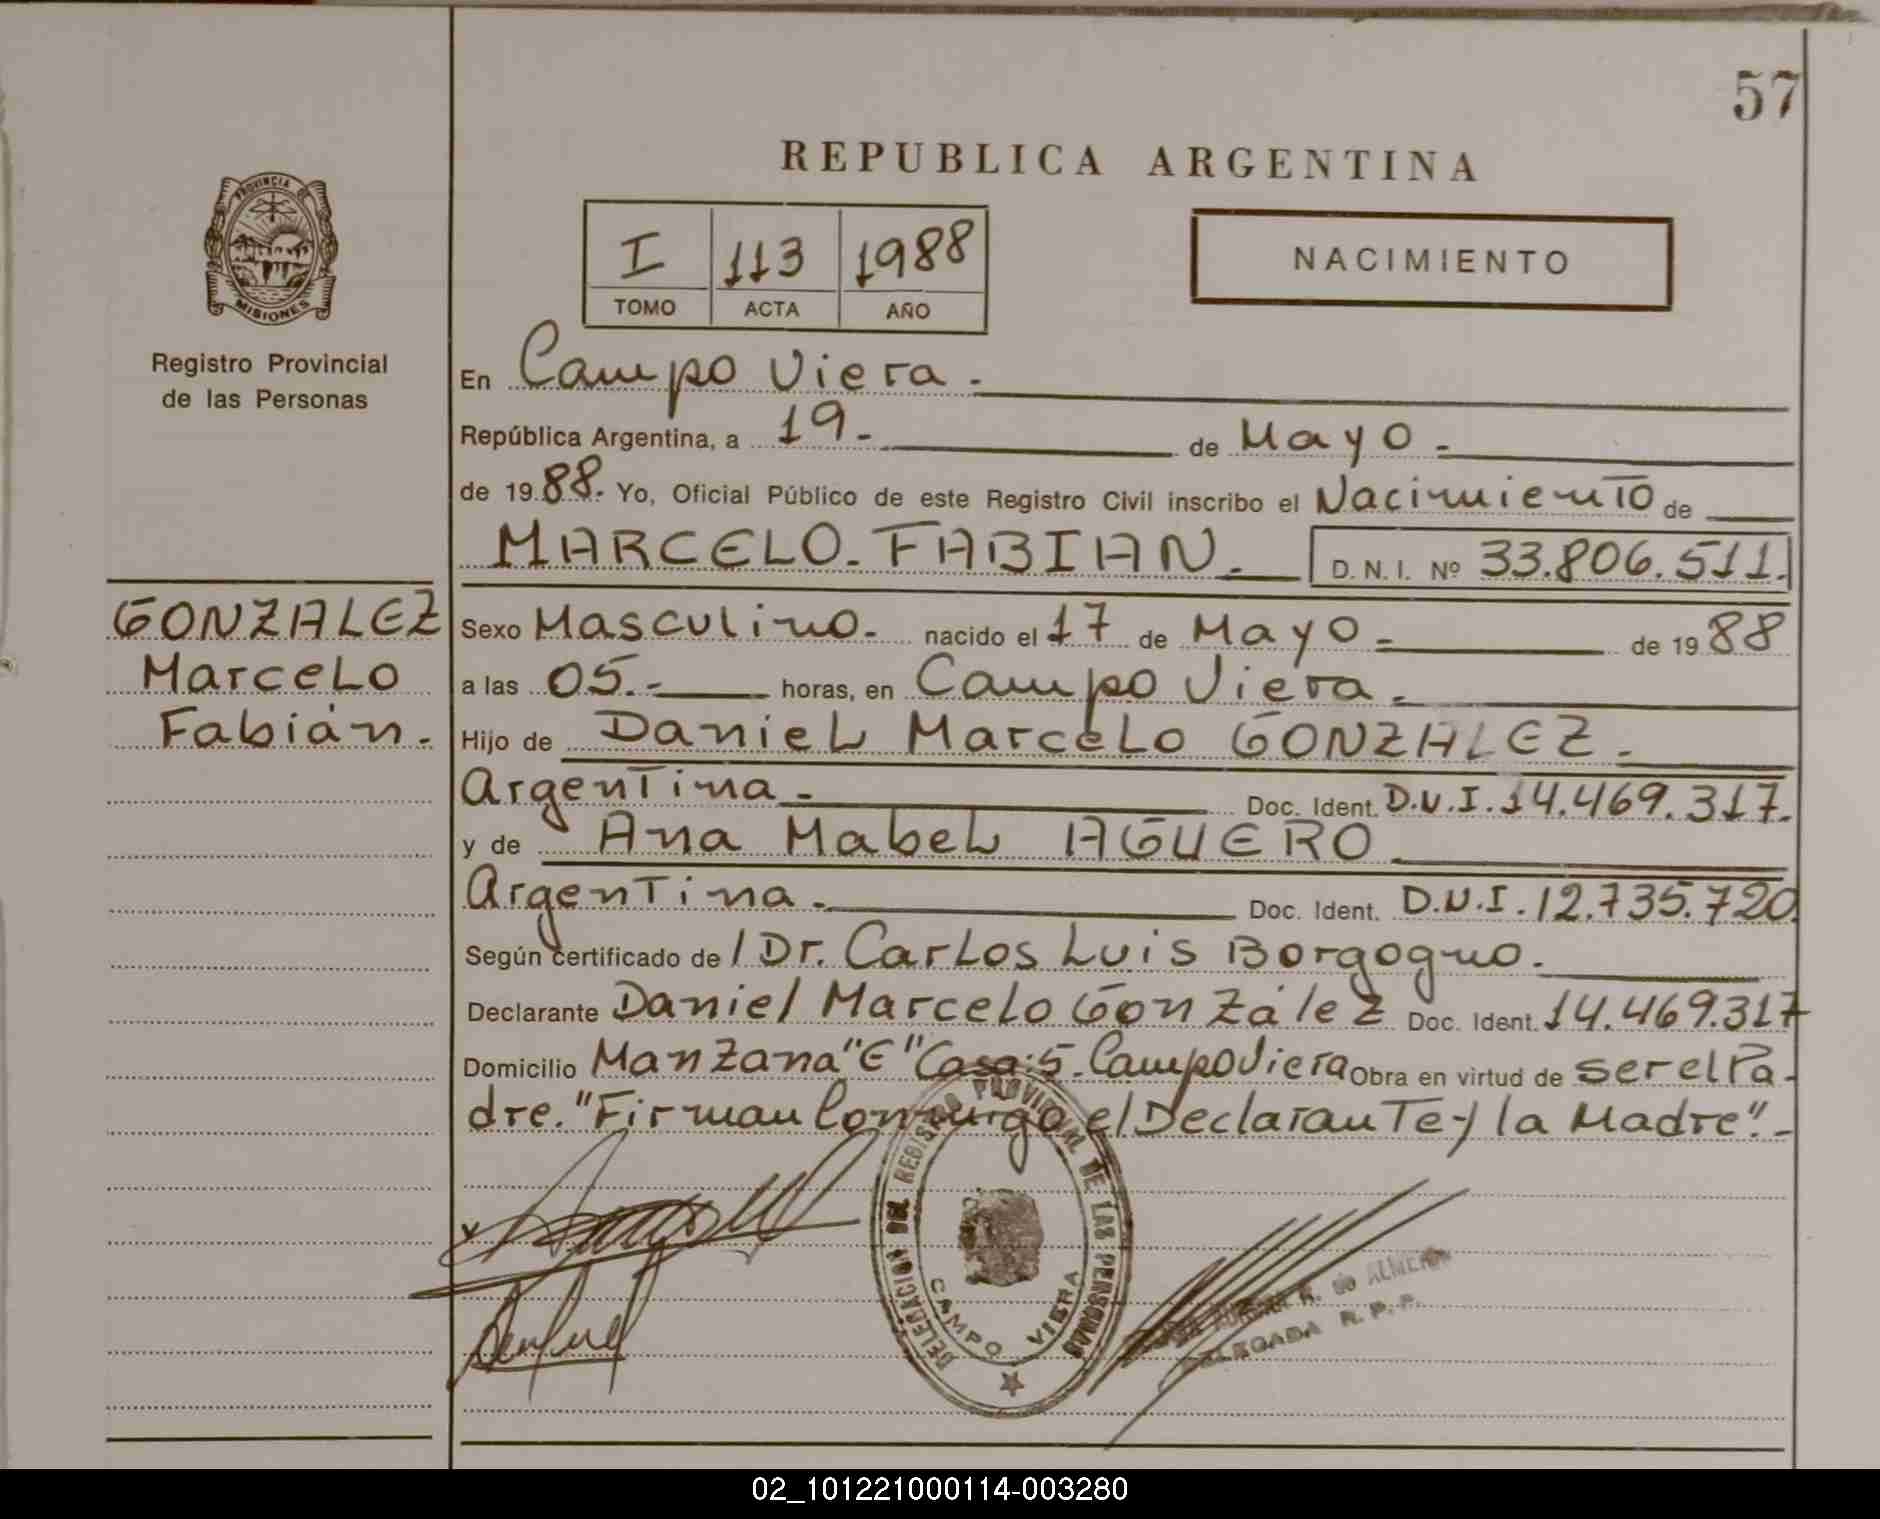 57
REPUBLICA ARGENTINA
PROVINCIA
MISIONES
Registro Provincial
de las Personas
I 113 1988
TOMO ACTA AÑO
NACIMIENTO
En Campo Viera.
República Argentina, a 19. de Mayo.
de 1988. Yo, Oficial Público de este Registro Civil inscribo el Nacimiento de
MARCELO FABIAN. D. N. I. Nº 33.806.511.
GONZALEZ
Marcelo
Fabián.
Sexo Masculino. nacido el 17 de Mayo. de 1988
a las 05. horas, en Campo Viera.
Hijo de Daniel Marcelo GONZALEZ.
Argentina. Doc. Ident. D.N.I. 14.469.317.
y de Ana Mabel AGUERO
Argentina. Doc. Ident. D.N.I. 12.735.720.
Según certificado de / Dr. Carlos Luis Borgogno.
Declarante Daniel Marcelo González Doc. Ident. 14.469.317
Domicilio Manzana "E" Casa: 5. Campo Viera Obra en virtud de ser el Pa-
dre. "Firman Conmigo el Declarante y la Madre".
DELEGACION DEL REGISTRO PROVINCIAL DE LAS PERSONAS
CAMPO VIERA
R. de ALMEIDA
DELEGADA R. P. P.
02_101221000114-003280